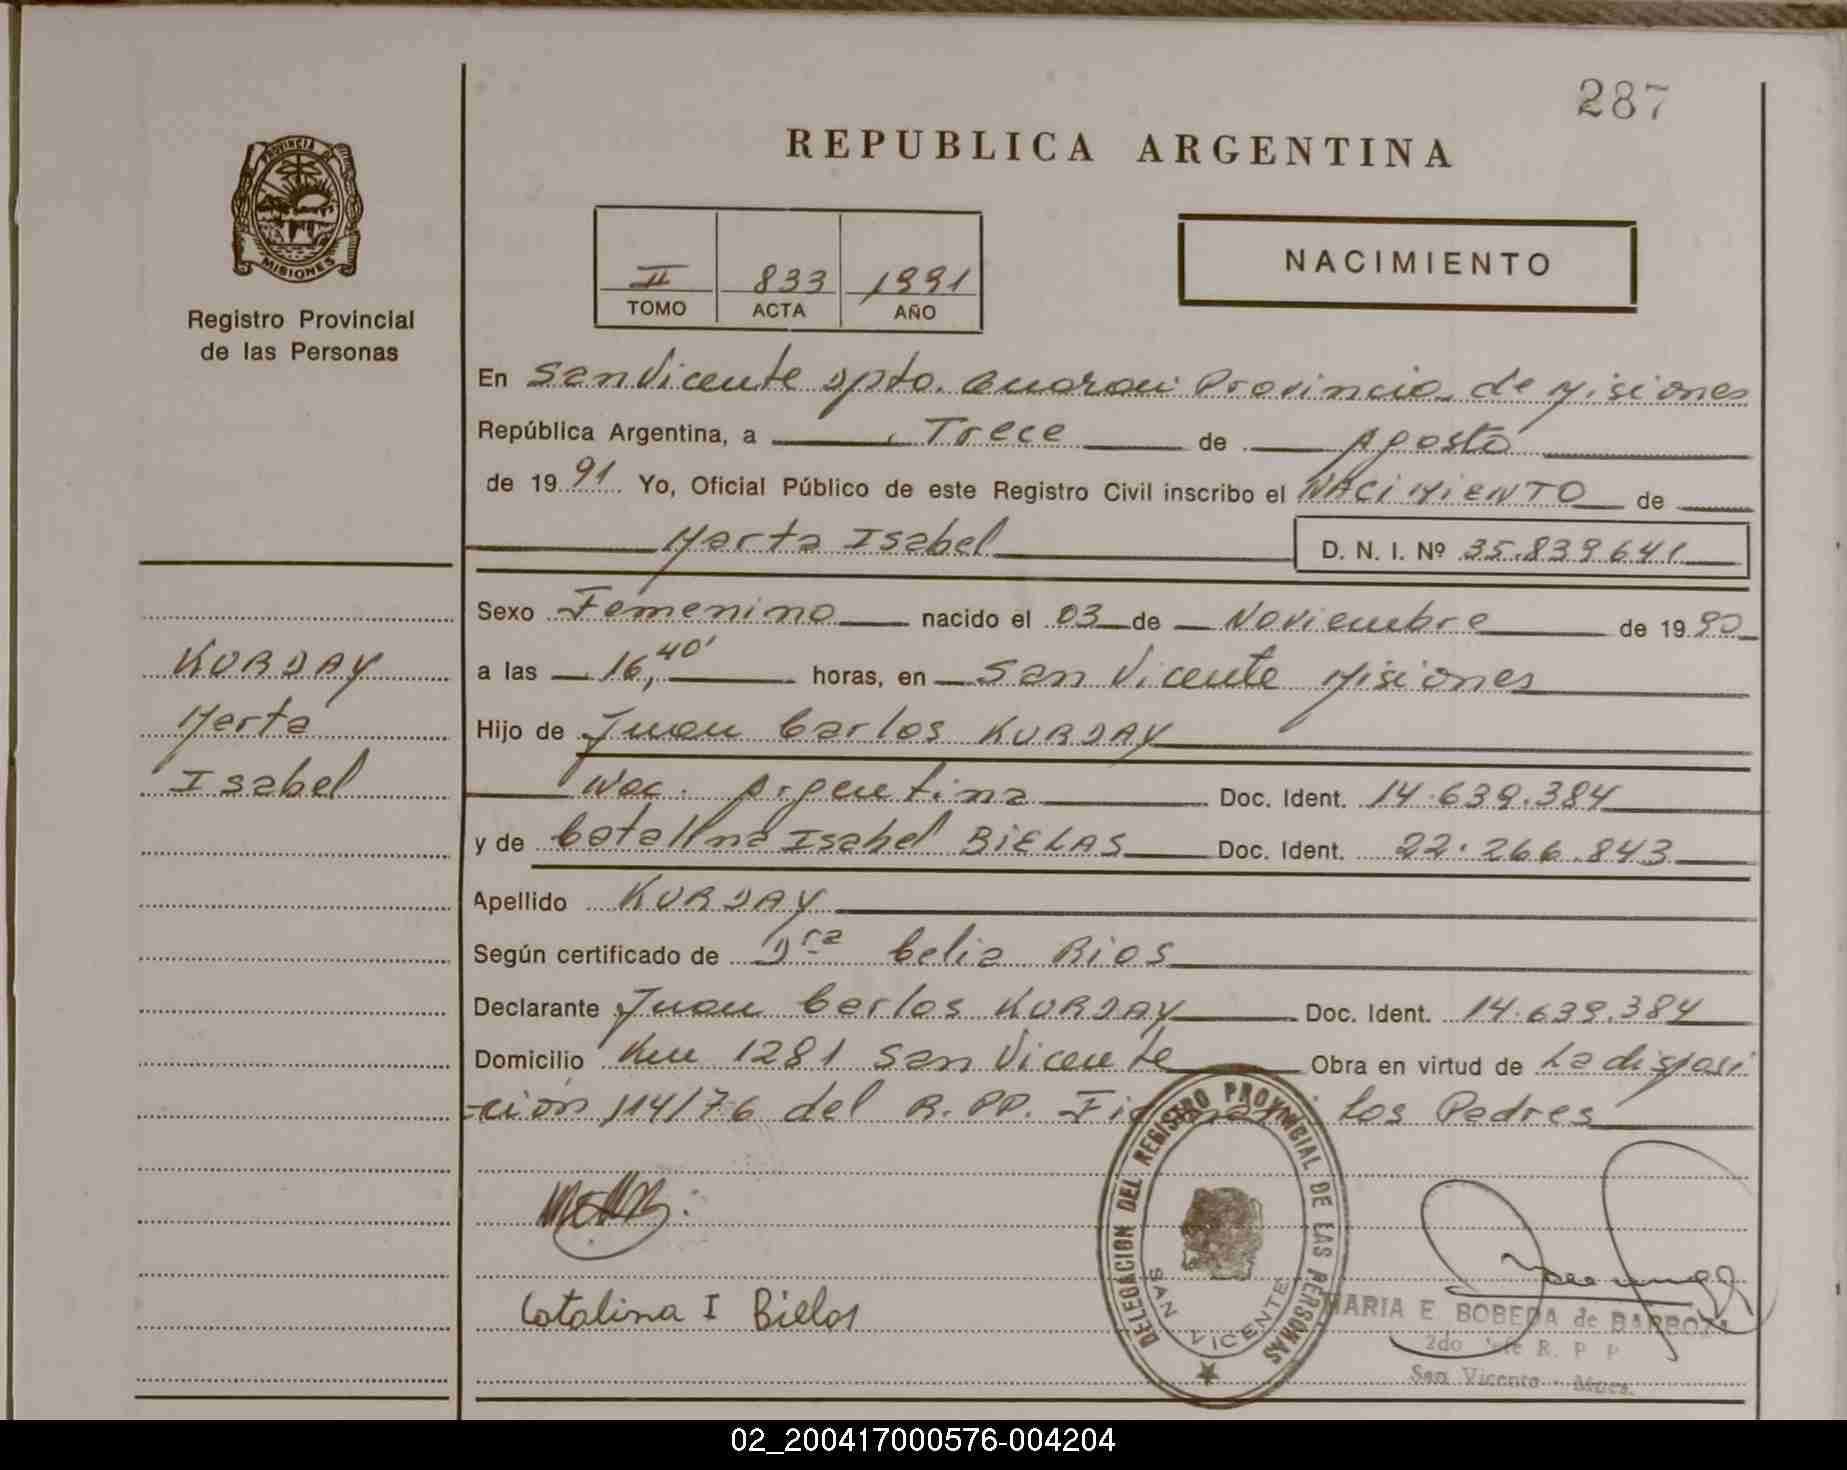 287
REPUBLICA ARGENTINA
PROVINCIA DE
MISIONES
Registro Provincial
de las Personas
II 833 1991
TOMO ACTA AÑO
NACIMIENTO
En San Vicente Dpto. Guarani Provincia de Misiones
República Argentina, a Trece de Agosto
de 1991 Yo, Oficial Público de este Registro Civil inscribo el NACIMIENTO de
Marta Isabel D. N. I. Nº 35.839.641
Sexo Femenino nacido el 03 de Noviembre de 1990
KURDAY
a las 16,40' horas, en San Vicente Misiones
Marta
Hijo de Juan Carlos KURDAY
Isabel
Nac. Argentina Doc. Ident. 14.639.384
y de Catalina Isabel BIELAS Doc. Ident. 22.266.843
Apellido KURDAY
Según certificado de Dra Celia Rios
Declarante Juan Carlos KURDAY Doc. Ident. 14.639.384
Domicilio Km 1281 San Vicente Obra en virtud de La disposi
-ción 114/76 del R.PP. Firman los Padres
DELEGACION DEL REGISTRO PROVINCIAL DE LAS PERSONAS
SAN VICENTE
Catalina I Bielas
MARIA E. BOBEDA de BARBOZA
2do Jefe R. P. P.
San Vicente - Mnes.
02_200417000576-004204